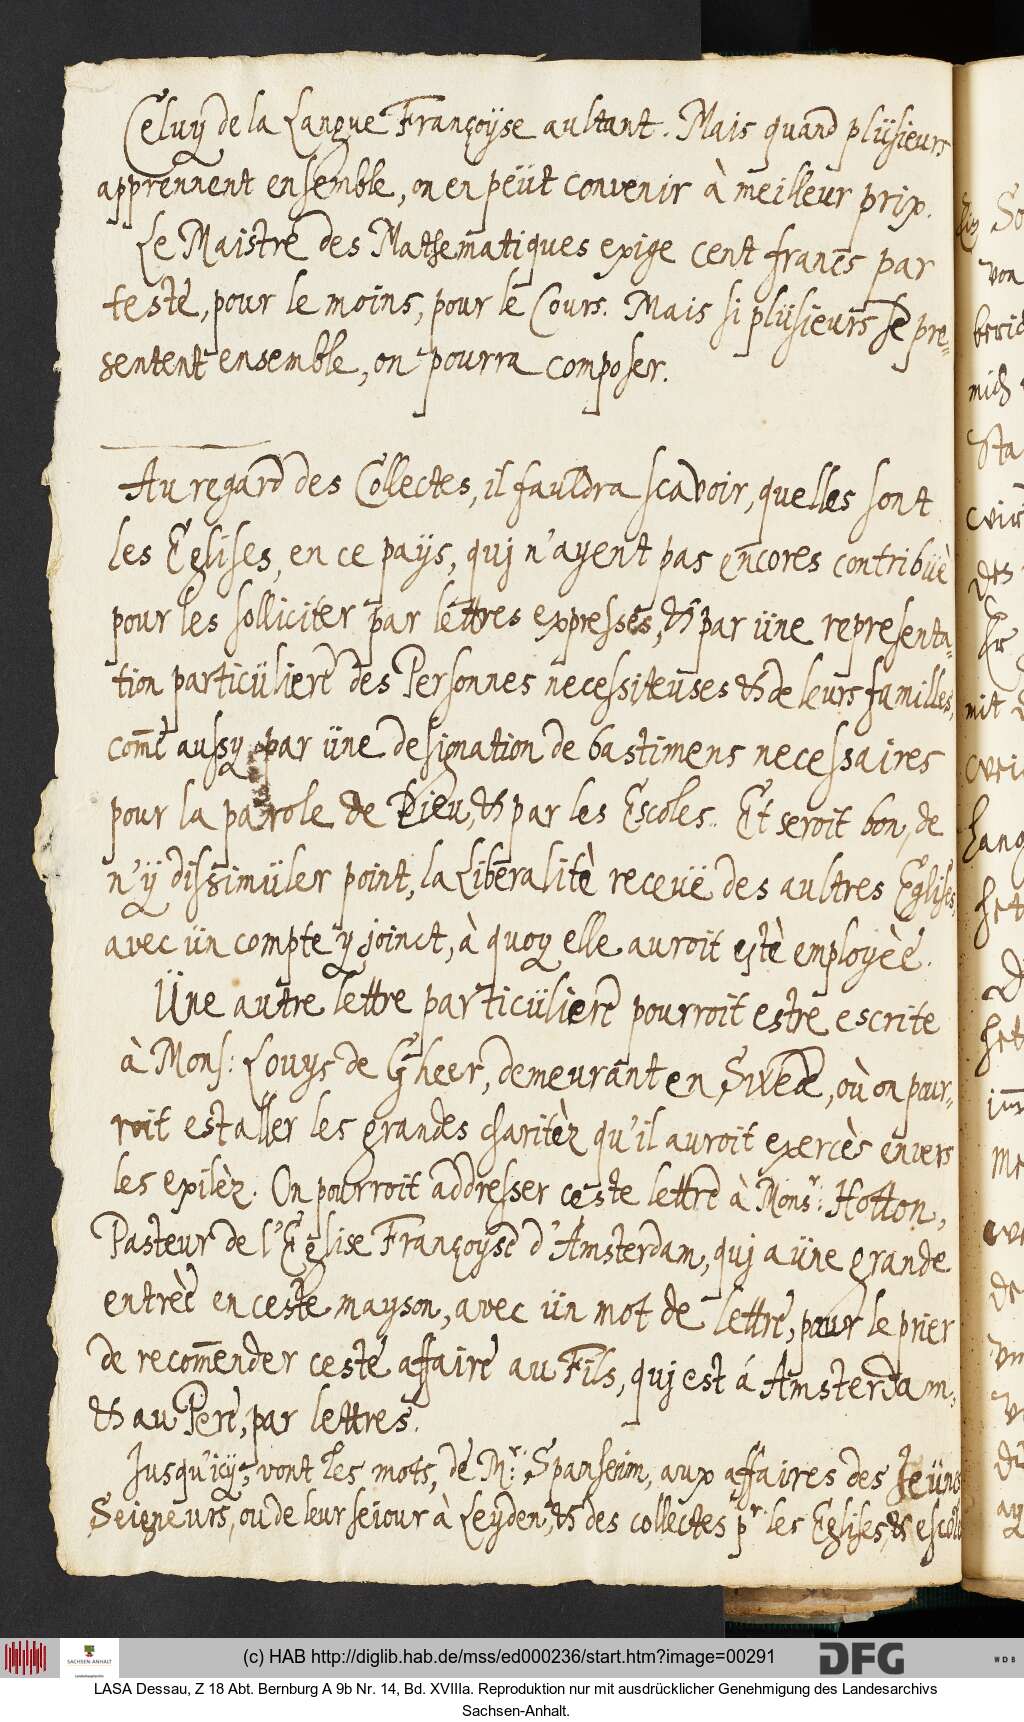 Celuy de la Langue Françoÿse aultant. Mais quand plüsieurs
apprennent ensemble, on en peüt convenir à meilleur prix.
Le Maistre des Mathematiques exige cent francs par
teste, pour le moins, pour le Cours. Mais si plüsieurs se pre-
sentent ensemble, on pourra composer.
Au regard des Collectes, il fauldra scavoir, quelles sont
les Eglises, en ce païs, quj n'ayent pas encores contribüè
pour les solliciter par lettres expresses, & par üne representa-
tion particüliere des Personnes necessiteüses & de leurs familles,
com̄e aussy par üne designation de bastimens necessaires
pour la parole de Dieu, & par les Escoles. Et seroit bon, de
n'ÿ dissimüler point, la Liberalitè receüe des aultres Eglises,
avec ün compte y joinct, à quoy elle auroit estè employèe.
Üne autre lettre particüliere pourroit estre escrite
à Mons: Louys de Gheer, demeurant en Swede, où on pour-
roit estaller les grandes charitèz qu'il auroit exercès envers
les exilèz. On pourroit addresser ceste lettre à Monsr: Hotton,
Pasteur de l'Eglise Françoyse d'Amsterdam, quj a üne grande
entrèe en ceste mayson, avec ün mot de lettre, pour le prier
de recom̄ender ceste affaire au Fils, quj est á Amsterdam,
& au Pere, par lettres.
Jusqu'icÿ, vont les mots, de Mr: Spanheim, aux affaires des Jeünes
Seigneurs, ou de leur sejour à Leyden, & des collectes pr les Eglises, & escoles
(c) HAB http://diglib.hab.de/mss/ed000236/start.htm?image=00291
SACHSEN-ANHALT
DFG
WDB
LASA Dessau, Z 18 Abt. Bernburg A 9b Nr. 14, Bd. XVIIIa. Reproduktion nur mit ausdrücklicher Genehmigung des Landesarchivs
Sachsen-Anhalt.